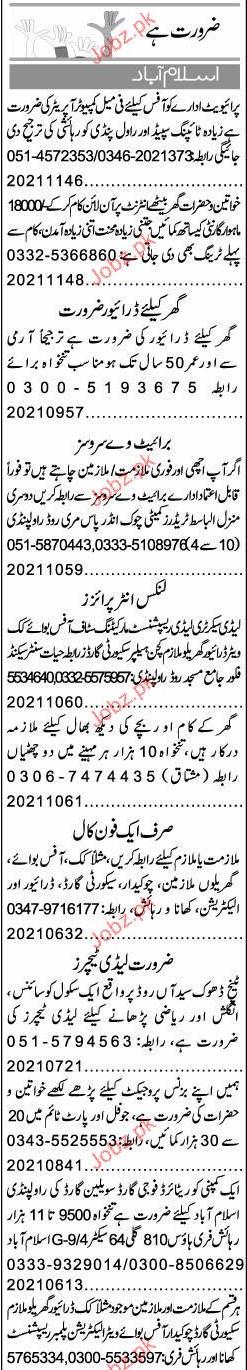 ضرورت ہے
اسلام آباد
پرائیویٹ ادارے کو آفس کیلئے فی میل کمپیوٹر آپریٹر کی ضرورت
ہے زیادہ ٹائپنگ سپیڈ اور راول پنڈی کی رہائشی کی ترجیح دی
جائیگی رابطہ: 051-4572353/0346-2021373
20211146
خواتین و حضرات گھر بیٹھے انٹرنیٹ پر آن لائن کام کر کے -/18000
ماہوار گارنٹی کیساتھ کمائیں جتنی زیادہ محنت اتنی زیادہ آمدن، کام سے
پہلے ٹریننگ بھی دی جاتی ہے: 0332-5366860
20211148
گھر کیلئے ڈرائیور ضرورت
گھر کیلئے ڈرائیور کی ضرورت ہے ترجیحاً آرمی
سے اور عمر 50 سال تک ہو مناسب تنخواہ برائے
رابطہ 0300-5193675
20210957
برائیٹ وے سروسز
اگر آپ اچھی اور فوری ملازمت/ملازمین چاہتے ہیں تو فوراً
قابل اعتماد ادارے برائیٹ وے سروسز سے رابطہ کریں دوسری
منزل الباسط ٹریڈرز کمیٹی چوک انڈر پاس مری روڈ راولپنڈی
(10 سے 4) 051-5870443,0333-5108976
20211059
لنکس انٹرپرائزز
لیڈی سیکرٹری لیڈی ریسپشنسٹ مارکیٹنگ سٹاف آفس بوائے کک
ویٹر ڈرائیور گھریلو ملازم کچن ہیلپر سکیورٹی گارڈز رابطہ حیات سنٹر سیکنڈ
فلور جامع مسجد روڈ راولپنڈی: 5534640,0332-5575957
20211060
گھر کے کام اور بچے کی دیکھ بھال کیلئے ملازمہ
درکار ہیں، تنخواہ 10 ہزار ہر مہینے میں دو چھٹیاں
رابطہ (مشتاق) 0306-7474435
20211061
صرف ایک فون کال
ملازمت یا ملازم کیلئے رابطہ کریں، مثلاً کک، آفس بوائے،
گھریلوں ملازمین، چوکیدار، سیکورٹی گارڈ، ڈرائیور اور
الیکٹریشن، کھانا و رہائش، رابطہ: 0347-9716177
20210632
ضرورت لیڈی ٹیچرز
ٹینچ ڈھوک سیداں روڈ پر واقع ایک سکول کو سائنس،
انگلش اور ریاضی پڑھانے کیلئے لیڈی ٹیچرز کی
ضرورت ہے، رابطہ: 051-5794563
20210721
ہمیں اپنے بزنس پروجیکٹ کیلئے پڑھے لکھے خواتین و
حضرات کی ضرورت ہے، جو فل اور پارٹ ٹائم میں 20
سے 30 ہزار کمائیں، رابطہ: 0343-5525553
20210841
ایک کمپنی کو ریٹائرڈ فوجی گارڈ سویلین گارڈ کی راولپنڈی
اسلام آباد کیلئے ضرورت ہے تنخواہ 9500 تا 11 ہزار
رہائش فری ہاؤس 810 گلی 64 سیکٹر G-9/4 اسلام آباد
0333-9329014/0300-8506629
20210613
ہر قسم کے ملازمت اور ملازمین موجود مثلاً کک ڈرائیور گھریلو ملازم
سکیورٹی گارڈ چوکیدار آفس بوائے ویٹر الیکٹریشن پلمبر ریسپشنسٹ
کھانا اور رہائش فری: 5765334,0300-5533597